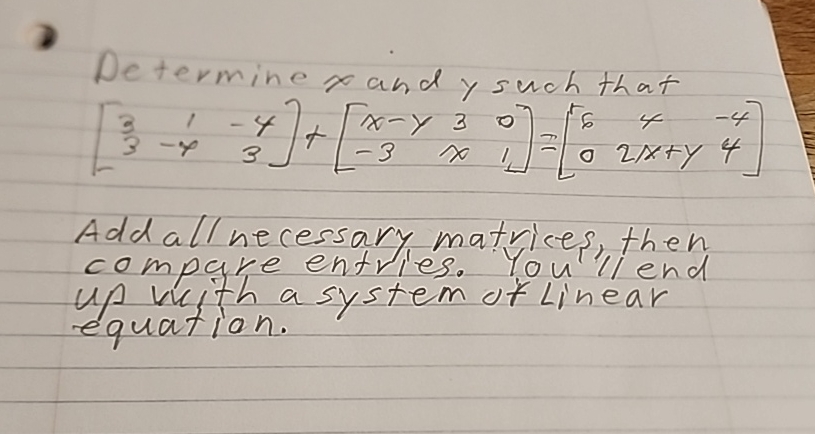 Determine x and y such that
[3 1 -4] + [x-y 3 0] = [6 4 -4]
[3 -4 3] [-3 x 1] [0 2x+y 4]
Add all necessary matrices, then
compare entries. You'll end
up with a system of Linear
equation.